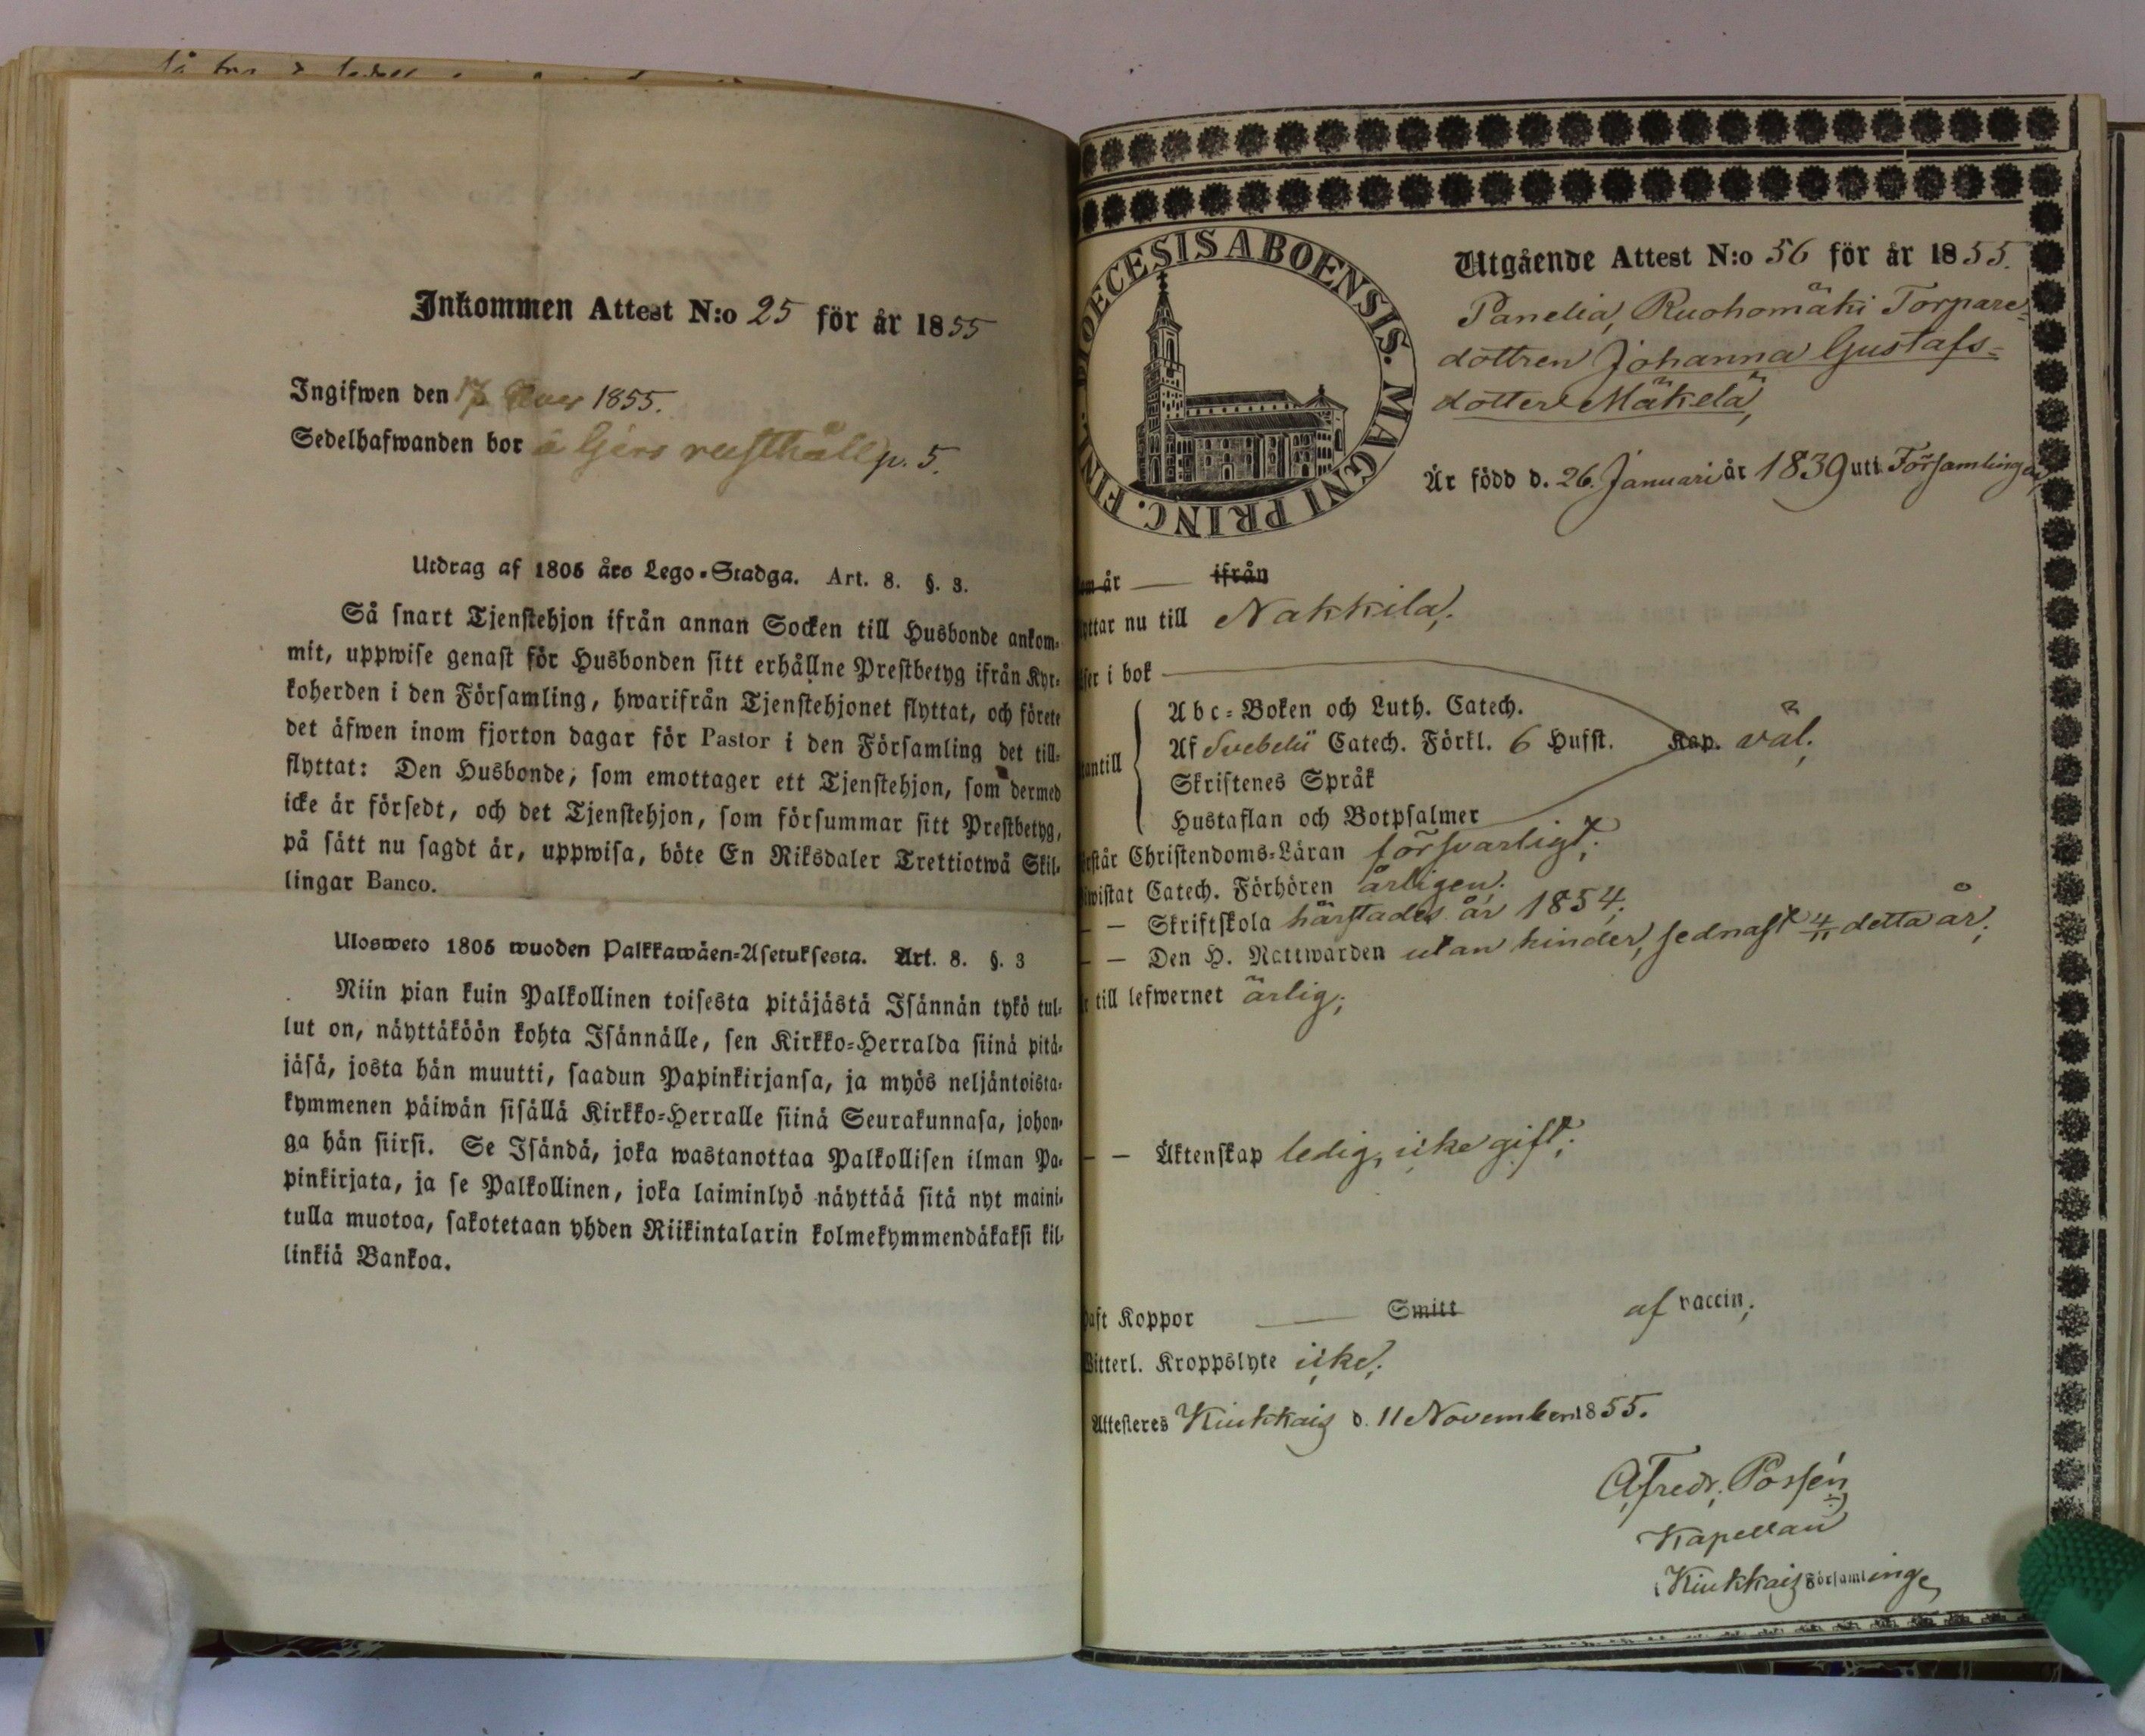 Inkommen Attest N:o 25 för år 1855
Ingifwen den 17 Nov 1855.
Sedelhafwanden bor å Gers rusthåll p. 5.
Utdrag af 1805 års Lego-Stadga. Art. 8. §. 3.
Så snart Tjenstehjon ifrån annan Socken till Husbonde ankom-
mit, uppwise genast för Husbonden sitt erhållne Prestbetyg ifrån Kyr-
koherden i den Församling, hwarifrån Tjenstehjonet flyttat, och förete
det äfwen inom fjorton dagar för Pastor i den Församling det till-
flyttat: Den Husbonde, som emottager ett Tjenstehjon, som dermed
icke är försedt, och det Tjenstehjon, som försummar sitt Prestbetyg,
på sätt nu sagdt är, uppwisa, böte En Riksdaler Trettiotwå Skil-
lingar Banco.
Ulosweto 1805 wuoden Palkkawäen-Asetuksesta. Art. 8. §. 3
Niin pian kuin Palkollinen toisesta pitäjästä Isännän tykö tul-
lut on, näyttäköön kohta Isännälle, sen Kirkko-Herralda siinä pitä-
jäsä, josta hän muutti, saadun Papinkirjansa, ja myös neljäntoista-
kymmenen päiwän sisällä Kirkko-Herralle siinä Seurakunnasa, johon-
ga hän siirsi. Se Isändä, joka wastanottaa Palkollisen ilman Pa-
pinkirjata, ja se Palkollinen, joka laiminlyö näyttää sitä nyt maini-
tulla muotoa, sakotetaan yhden Riikintalarin kolmekymmendäkaksi kil-
linkiä Bankoa.
DIOECESIS ABOENSIS. MAGNI PRINC. FINL.
Utgående Attest N:o 56 för år 1855.
Panelia, Ruohomäki Torpare-
dottren Johanna Gustafs-
dotter Mäkelä,
Är född d. 26. Januari år 1839 uti Församlingen
år — ifrån
ttar nu till Nakkila;
ser i bok
Abc-Boken och Luth. Catech.
Af Svebelii Catech. Förkl. 6 Hufst. Kap. väl;
antill
Skriftenes Språk
Hustaflan och Botpsalmer
står Christendoms-Läran försvarligt;
wistat Catech. Förhören årligen;
— — Skriftskola härstädes år 1854;
— — Den H. Nattwarden utan hinder, sednast 4/11 detta år;
till lefwernet ärlig;
— — Äktenskap ledig, icke gift;
haft Koppor — Smitt af vaccin;
Witterl. Kroppslyte icke;
Attesteres Kiukkais d. 11 November 1855.
A Fredr. Possén
Kapellan
i Kiukkais Församlinge